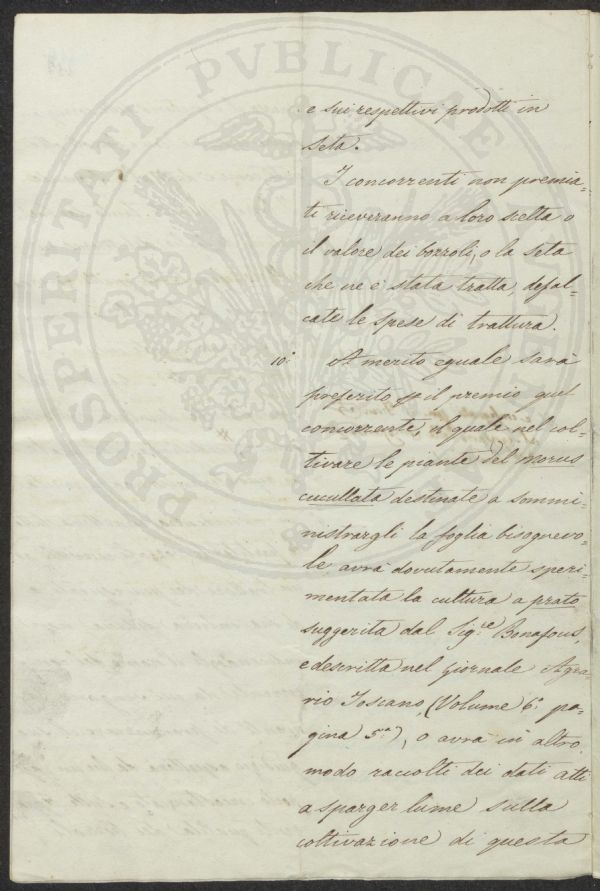 PROSPERITATI PVBLICAE AVGENDAE
e sui respettivi prodotti in
seta.
I concorrenti non premia-
ti riceveranno a loro scelta o
il valore dei bozzoli, o la seta
che ne è stata tratta, defal-
cate le spese di trattura.
10.° A merito eguale sarà
preferito pel il premio quel
concorrente, il quale nel col-
tivare le piante del morus
cucullata destinate a sommi-
nistrargli la foglia bisognevo-
le avrà dovutamente speri-
mentata la cultura a prato
suggerita dal Sig.re Bonafous,
e descritta nel Giornale Agra-
rio Toscano, (Volume 6.° pa-
gina 5.a), o avrà in altro
modo raccolti dei dati atti
a sparger lume sulla
coltivazione di questa